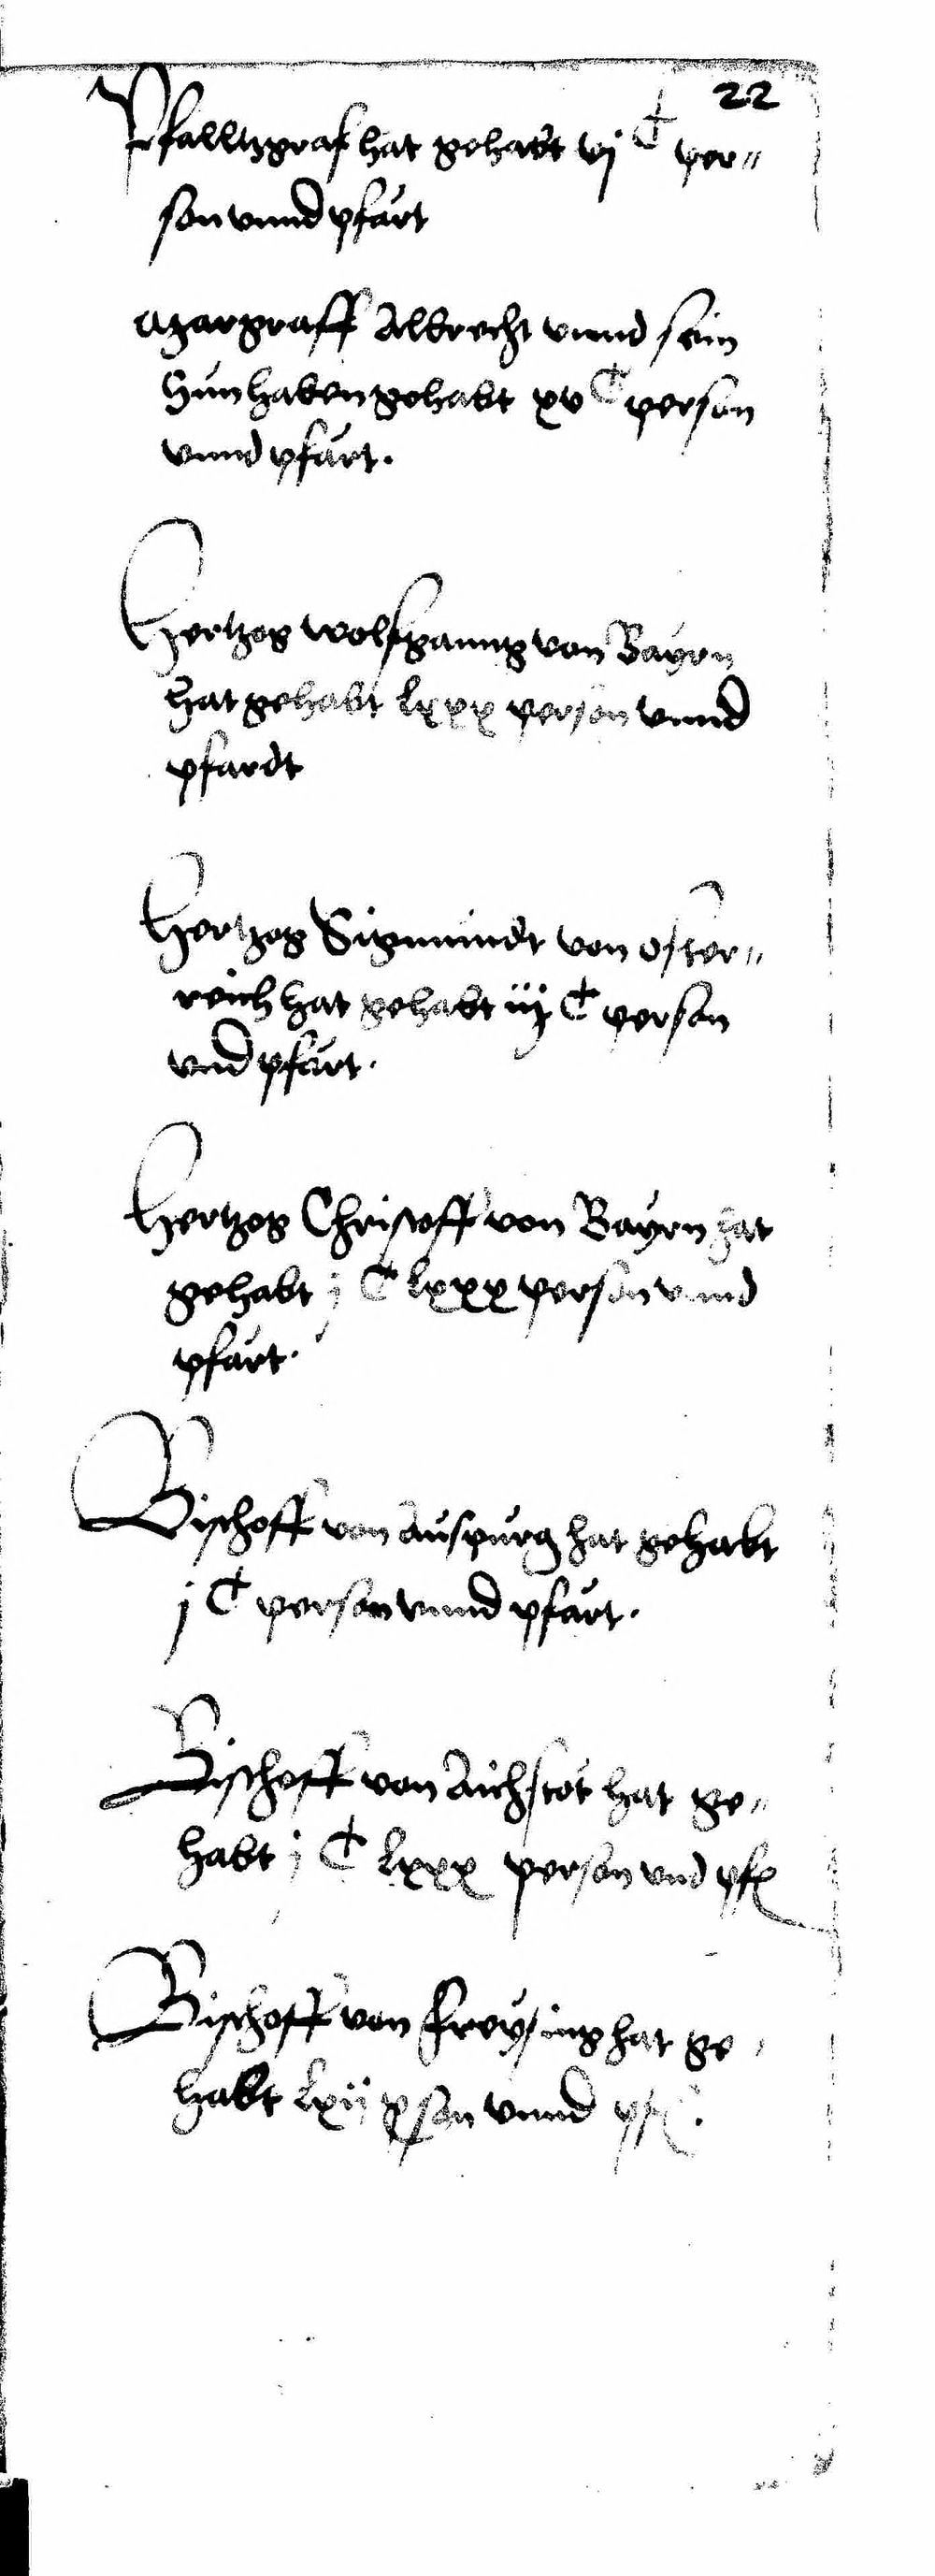 22
Pfalltzgraf hat gehabt vj C per„
son vnnd pfärt
Margraff Albrecht vnnd sein
Sün haben gehabt xv C person
vnnd pfärt.
Hertzog Wolfganng von Bayrn
hat gehabt lxxx person vnnd
pfardt
Hertzog Sigmundt von Oster„
reich hat gehabt iij C person
vnd pfärt.
Hertzog Christoff von Bayrn hat
gehabt j C lxxx person vnnd
pfärt.
Bischoff von Auspurg hat gehabt
j C person vnnd pfärt.
Bischoff von Aichstet hat ge„
habt j C lxxx person vnd pf
Bischoff von Freysing hat ge„
habt lxij pson vnnd pf.